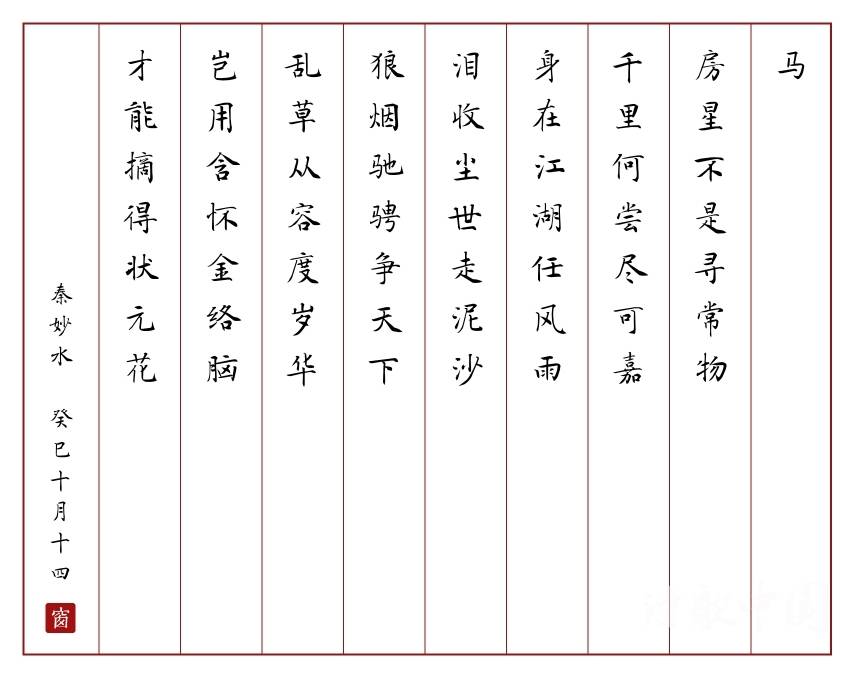 马
房星不是寻常物
千里何尝尽可嘉
身在江湖任风雨
泪收尘世走泥沙
狼烟驰骋争天下
乱草从容度岁华
岂用含怀金络脑
才能摘得状元花
秦妙水 癸巳十月十四
窗